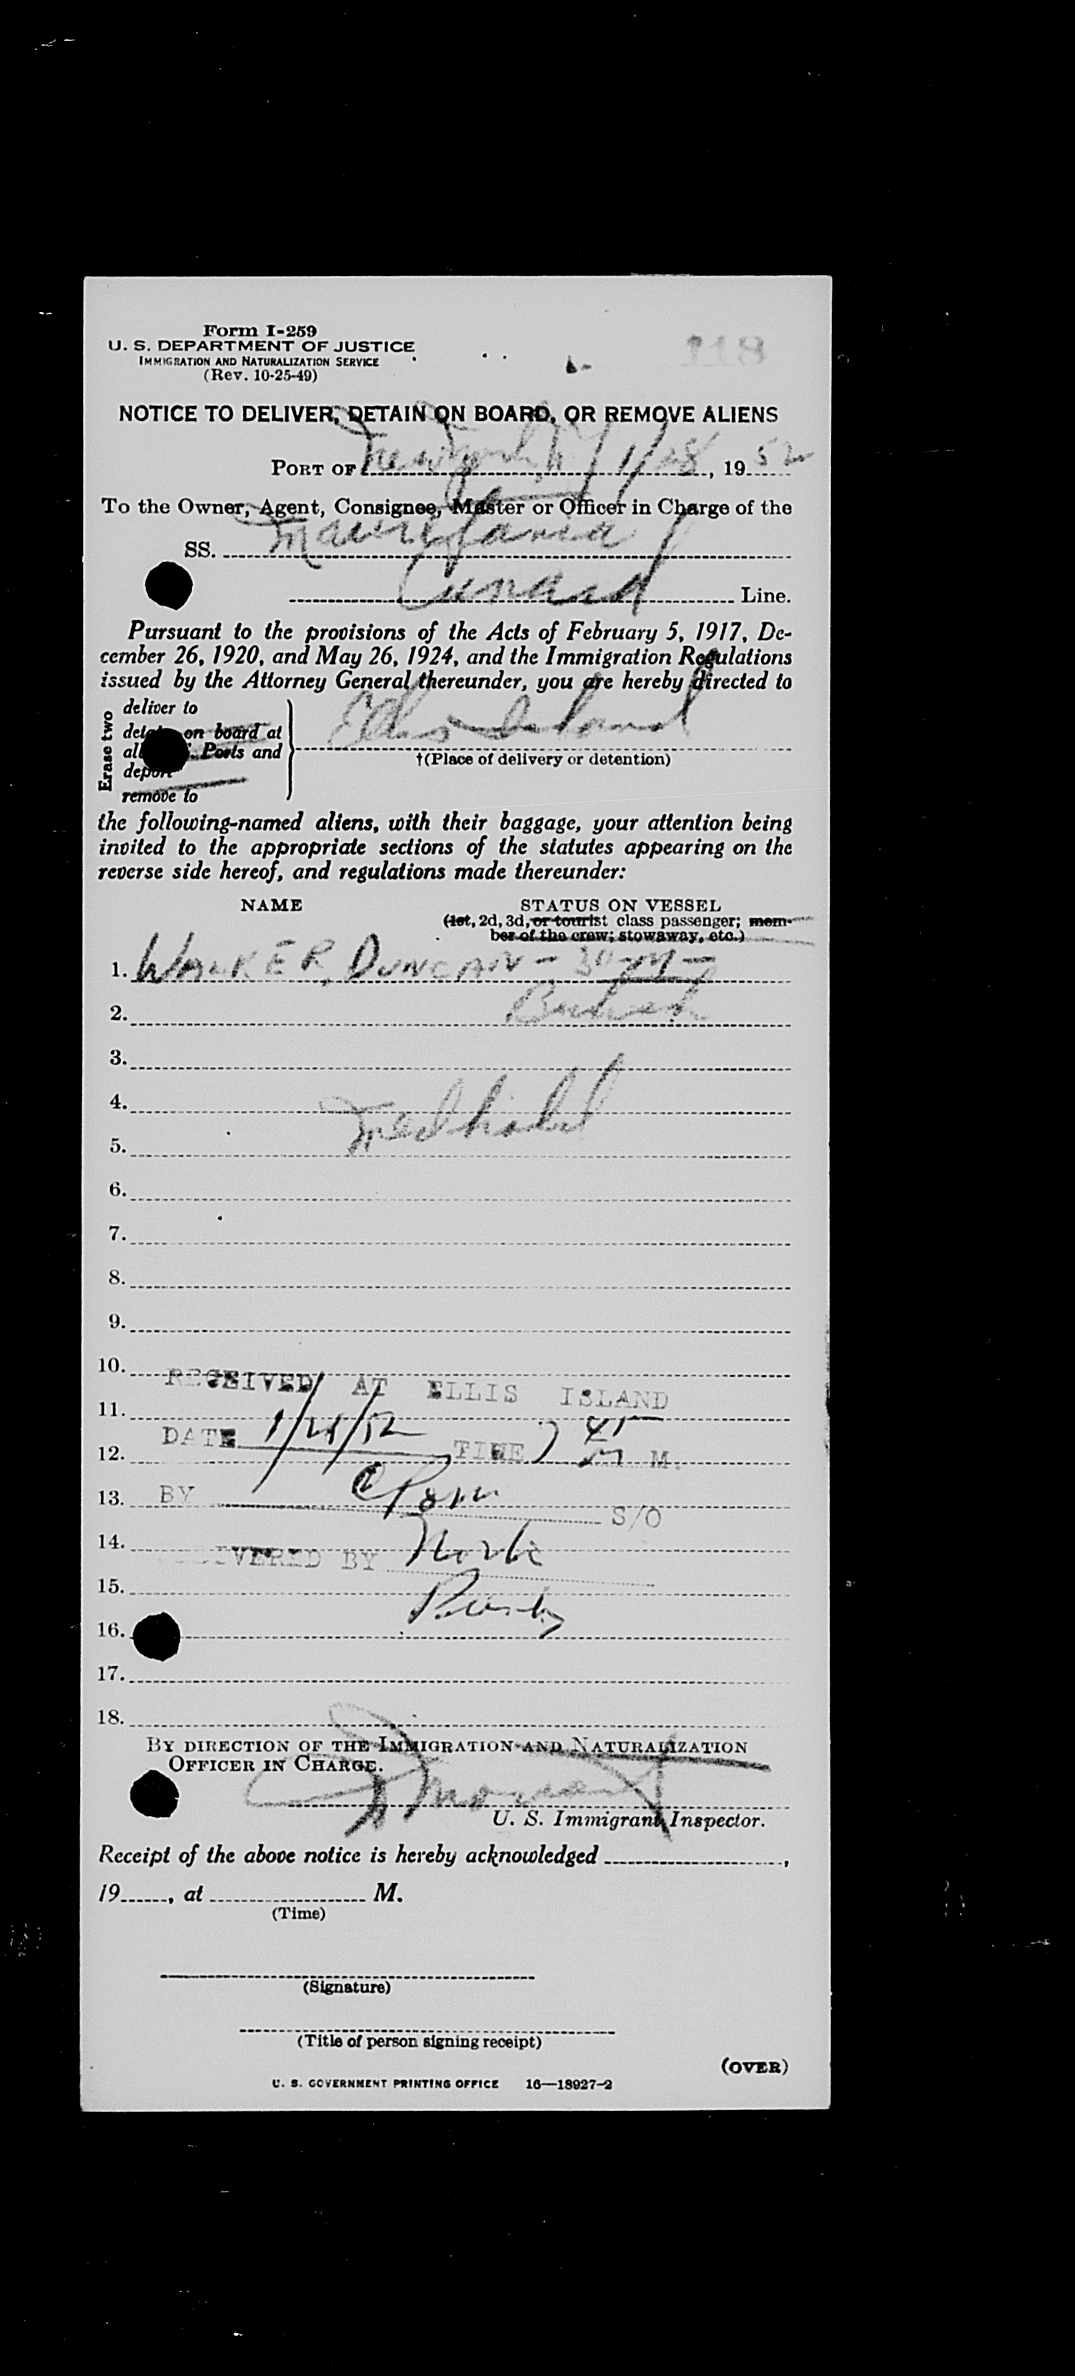 Form I-259
118
U. S. DEPARTMENT OF JUSTICE
IMMIGRATION AND NATURALIZATION SERVICE
(Rev. 10-25-49)
NOTICE TO DELIVER, DETAIN ON BOARD, OR REMOVE ALIENS
PORT OF New York, N Y 1/28, 1952
To the Owner, Agent, Consignee, Master or Officer in Charge of the
SS. Mauretania
Cunard Line.
Pursuant to the provisions of the Acts of February 5, 1917, De-
cember 26, 1920, and May 26, 1924, and the Immigration Regulations
issued by the Attorney General thereunder, you are hereby directed to
Erase two
deliver to
on board at
Ports and
deport
remove to
Ellis Island
†(Place of delivery or detention)
the following-named aliens, with their baggage, your attention being
invited to the appropriate sections of the statutes appearing on the
reverse side hereof, and regulations made thereunder:
NAME STATUS ON VESSEL
(1st, 2d, 3d, or tourist class passenger; mem-
ber of the crew; stowaway, etc.)
1. WALKER, DUNCAN - 30 - M -
2. British
3.
4. Med hold
5.
6.
7.
8.
9.
10.
RECEIVED AT ELLIS ISLAND
11.
DATE 1/28/52 TIME 7 45 M.
12.
13. BY S/O
14.
DELIVERED BY
15.
16.
17.
18.
BY DIRECTION OF THE IMMIGRATION AND NATURALIZATION
OFFICER IN CHARGE.
U. S. Immigrant Inspector.
Receipt of the above notice is hereby acknowledged ,
19 , at M.
(Time)
(Signature)
(Title of person signing receipt)
(OVER)
U. S. GOVERNMENT PRINTING OFFICE 16—18927-2